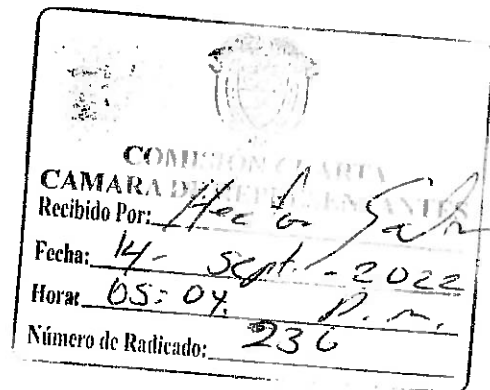 COMISIÓN CUARTA
CAMARA DE REPRESENTANTES
Recibido Por: Hector
Fecha: 14 - Sept. - 2022
Hora: 05:04. P.m.
Número de Radicado: 236